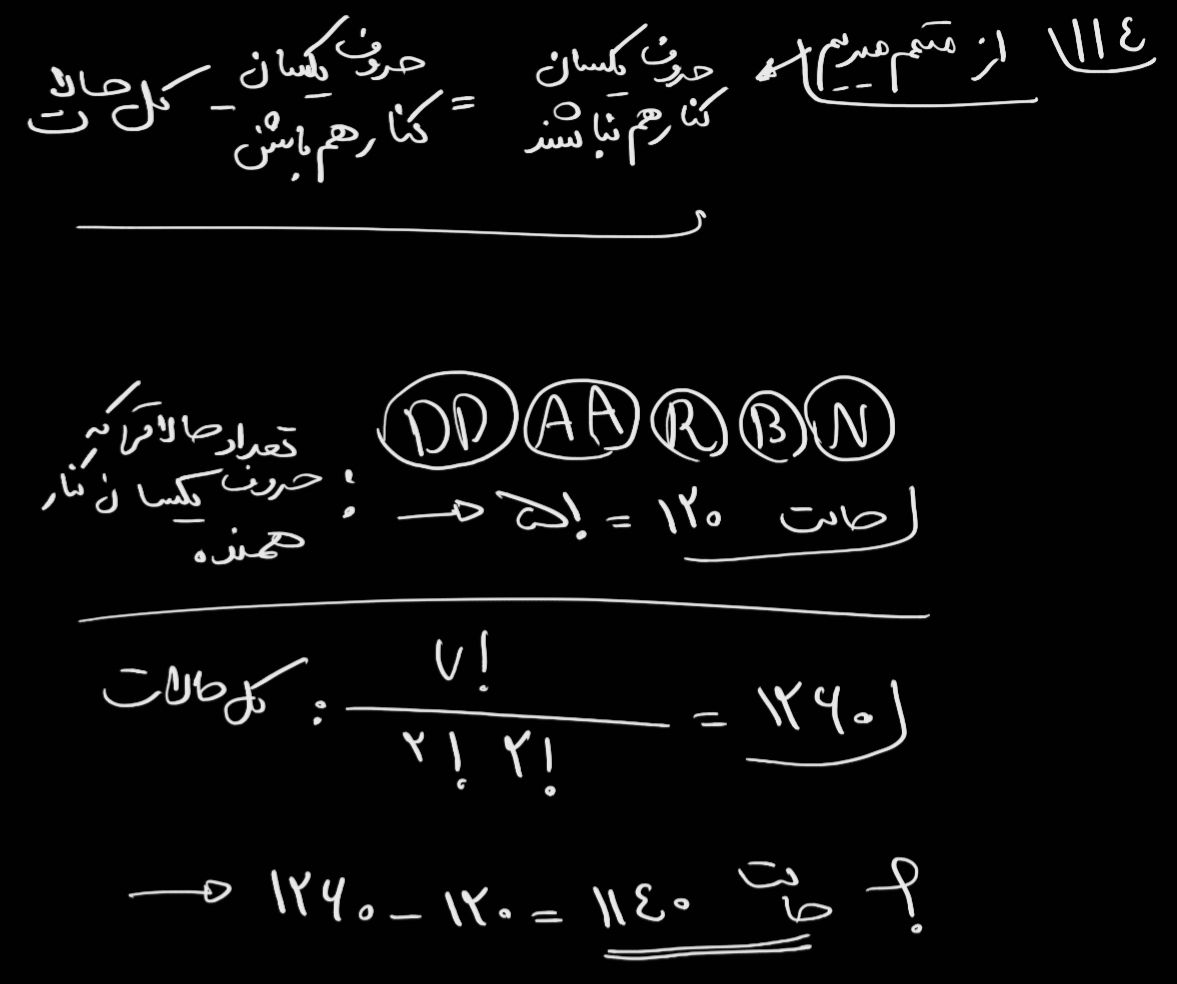 ۱۱۴ از متمم میریم ← حروف یکسان کنار هم نباشند = حروف یکسان کنار هم باشن − کل حالات
DD AA R B N
تعداد حالاتی که حروف یکسان کنار همنده : → ۵! = ۱۲۰ حالت
کل حالات : ۷! / ۲! ۲! = ۱۲۶۰
→ ۱۲۶۰ − ۱۲۰ = ۱۱۴۰ حالت ؟